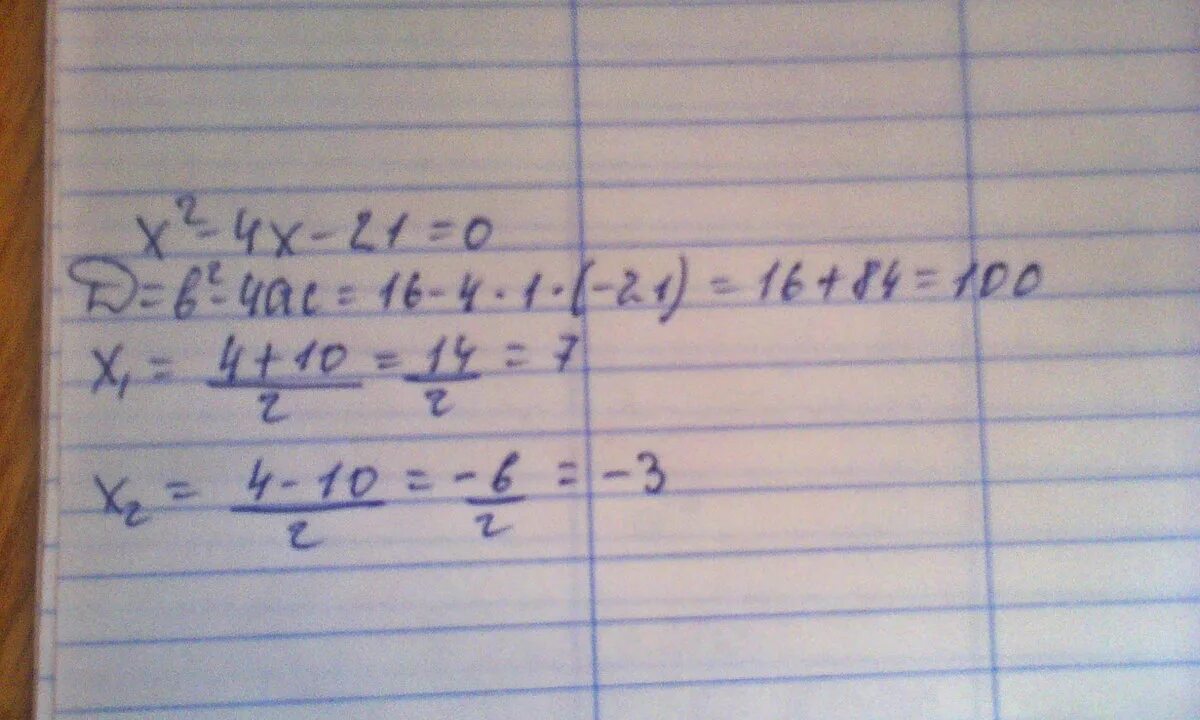 x² - 4x - 21 = 0
D = b² - 4ac = 16 - 4 · 1 · (-21) = 16 + 84 = 100
x₁ = (4 + 10)/2 = 14/2 = 7
x₂ = (4 - 10)/2 = -6/2 = -3